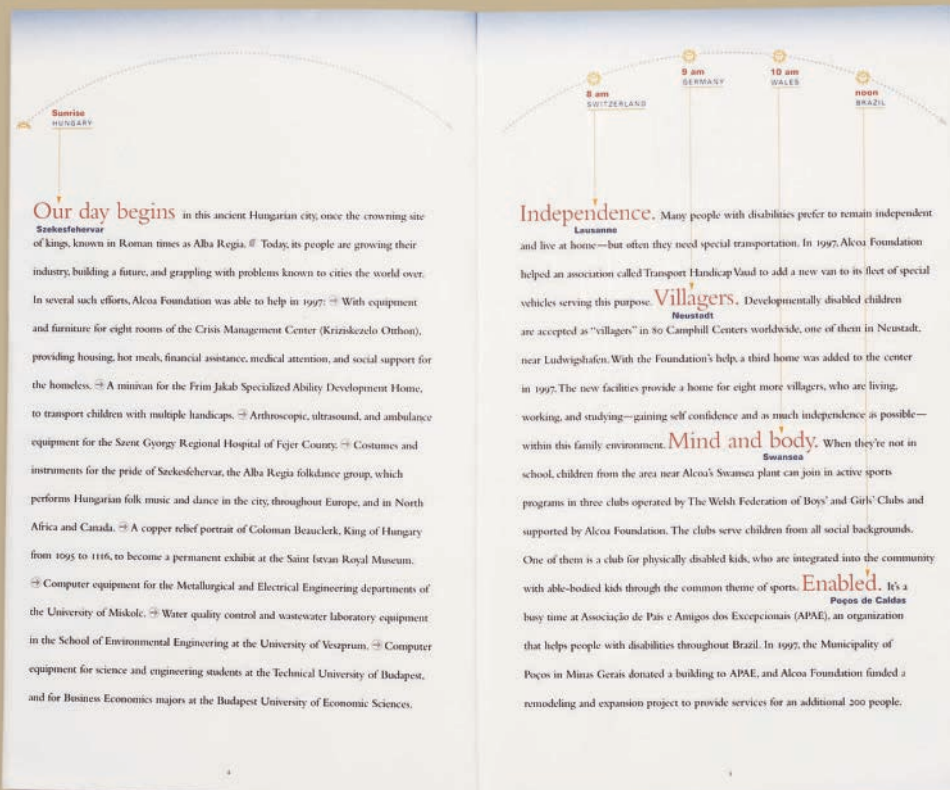 Sunrise
HUNGARY
Our day begins in this ancient Hungarian city, once the crowning site
Szekesfehervar
of kings, known in Roman times as Alba Regia. Today, its people are growing their
industry, building a future, and grappling with problems known to cities the world over.
In several such efforts, Alcoa Foundation was able to help in 1997: → With equipment
and furniture for eight rooms of the Crisis Management Center (Kriziskezelo Otthon),
providing housing, hot meals, financial assistance, medical attention, and social support for
the homeless. → A minivan for the Frim Jakab Specialized Ability Development Home,
to transport children with multiple handicaps. → Arthroscopic, ultrasound, and ambulance
equipment for the Szent Gyorgy Regional Hospital of Fejer County. → Costumes and
instruments for the pride of Szekesfehervar, the Alba Regia folkdance group, which
performs Hungarian folk music and dance in the city, throughout Europe, and in North
Africa and Canada. → A copper relief portrait of Coloman Beauclerk, King of Hungary
from 1095 to 1116, to become a permanent exhibit at the Saint Istvan Royal Museum.
→ Computer equipment for the Metallurgical and Electrical Engineering departments of
the University of Miskolc. → Water quality control and wastewater laboratory equipment
in the School of Environmental Engineering at the University of Veszprum. → Computer
equipment for science and engineering students at the Technical University of Budapest,
and for Business Economics majors at the Budapest University of Economic Sciences.
4
8 am
SWITZERLAND
9 am
GERMANY
10 am
WALES
noon
BRAZIL
Independence. Many people with disabilities prefer to remain independent
Lausanne
and live at home—but often they need special transportation. In 1997, Alcoa Foundation
helped an association called Transport Handicap Vaud to add a new van to its fleet of special
vehicles serving this purpose. Villagers. Developmentally disabled children
Neustadt
are accepted as “villagers” in 80 Camphill Centers worldwide, one of them in Neustadt,
near Ludwigshafen. With the Foundation’s help, a third home was added to the center
in 1997. The new facilities provide a home for eight more villagers, who are living,
working, and studying—gaining self confidence and as much independence as possible—
within this family environment. Mind and body. When they’re not in
Swansea
school, children from the area near Alcoa’s Swansea plant can join in active sports
programs in three clubs operated by The Welsh Federation of Boys’ and Girls’ Clubs and
supported by Alcoa Foundation. The clubs serve children from all social backgrounds.
One of them is a club for physically disabled kids, who are integrated into the community
with able-bodied kids through the common theme of sports. Enabled. It’s a
Poços de Caldas
busy time at Associação de Pais e Amigos dos Excepcionais (APAE), an organization
that helps people with disabilities throughout Brazil. In 1997, the Municipality of
Poços in Minas Gerais donated a building to APAE, and Alcoa Foundation funded a
remodeling and expansion project to provide services for an additional 200 people.